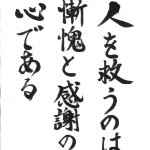 人を救うのは
慚愧と感謝の
心である